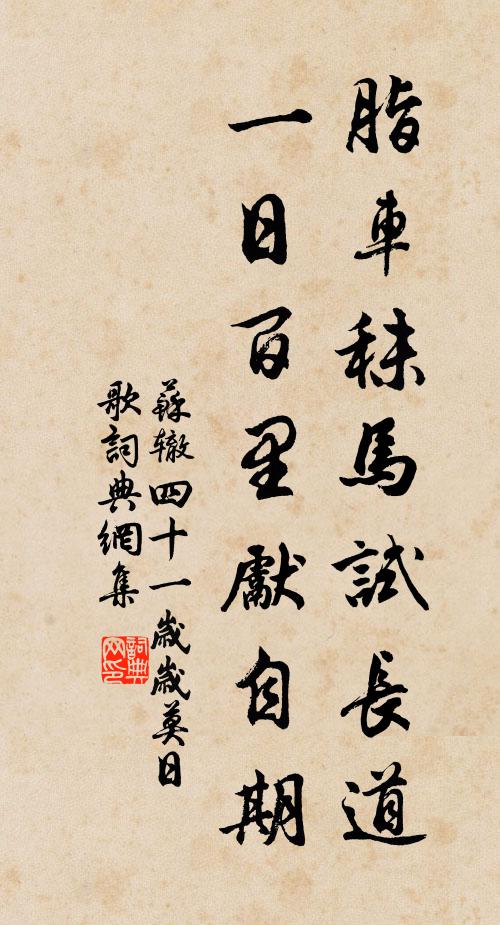 脂車秣馬試長道
一日百里獻自期
蘇辙四十一歲歲莫日
歌詞典網集
詞典網印